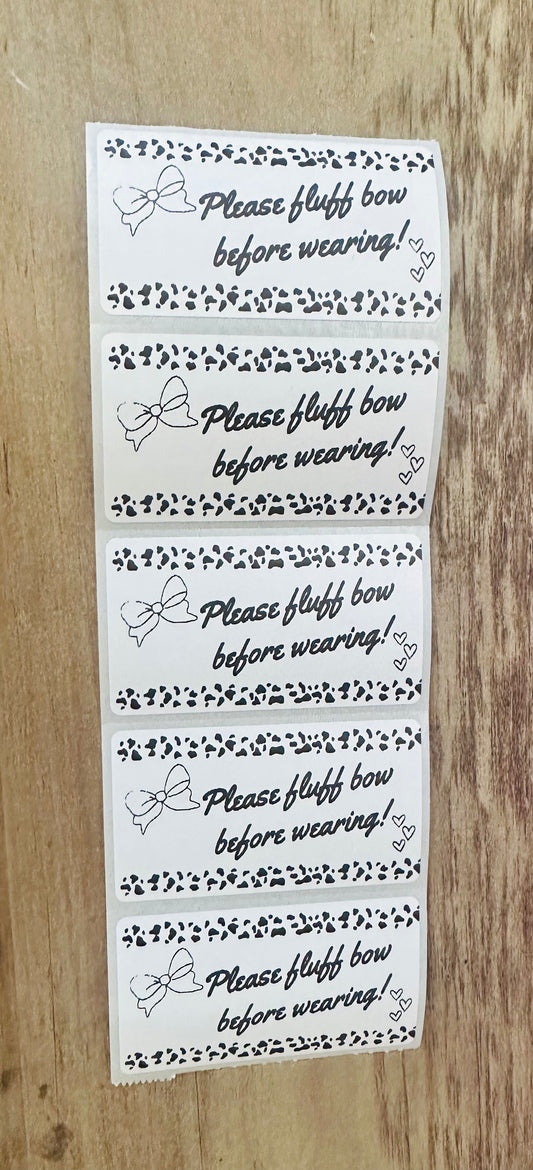 Please fluff bow
before wearing!
Please fluff bow
before wearing!
Please fluff bow
before wearing!
Please fluff bow
before wearing!
Please fluff bow
before wearing!